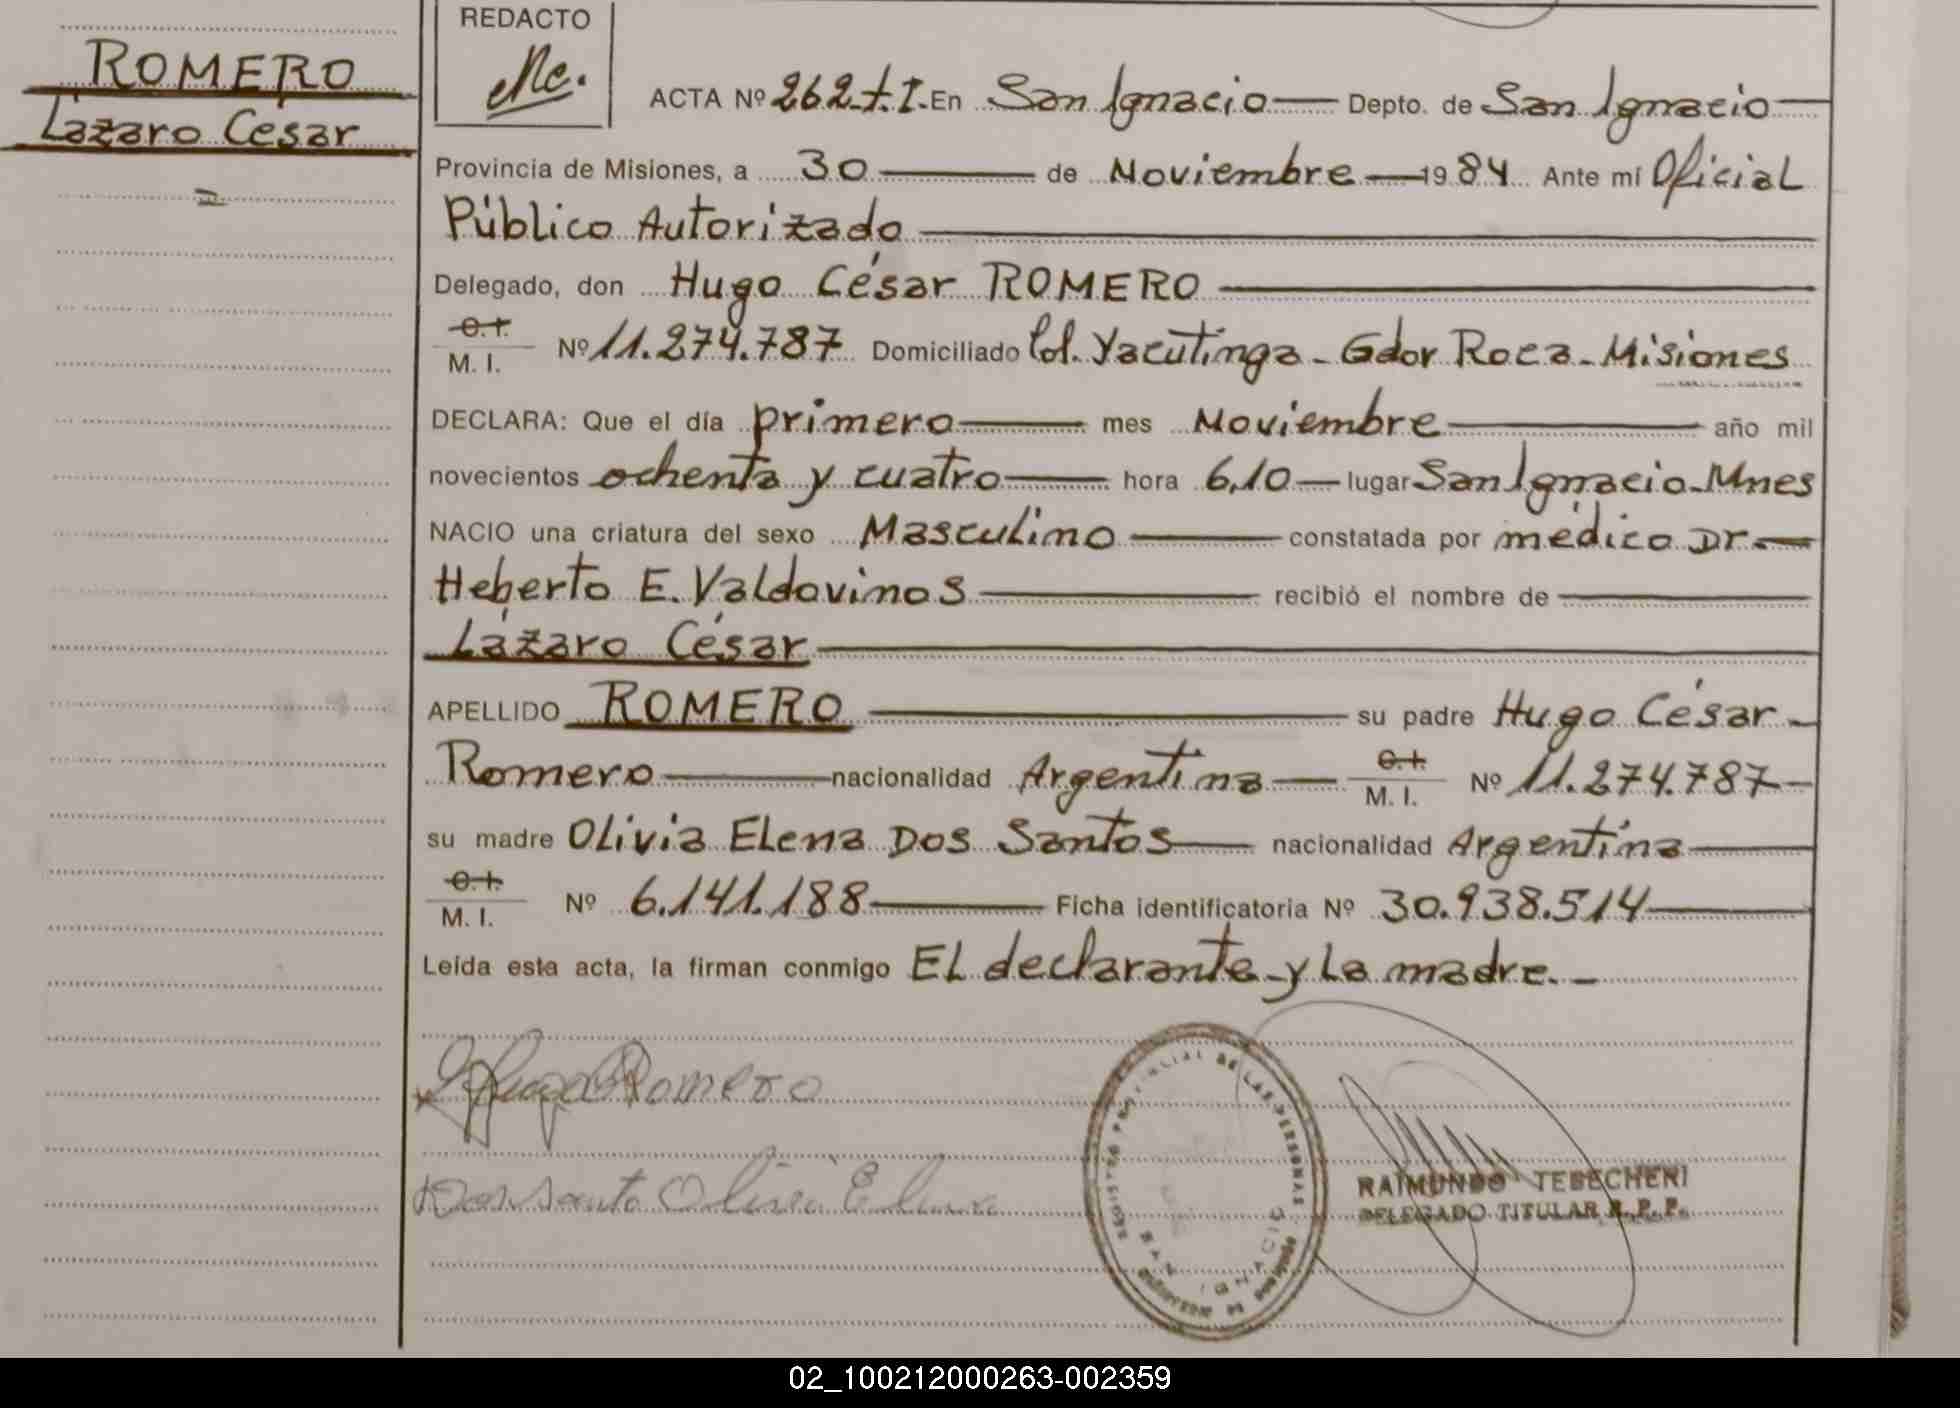 ROMERO
Lázaro Cesar
REDACTO
ACTA Nº 262-t.I- En San Ignacio Depto. de San Ignacio
Provincia de Misiones, a 30 de Noviembre 1984 Ante mí Oficial
Público Autorizado
Delegado, don Hugo César ROMERO
C.I.
M. I. Nº 11.274.787 Domiciliado Col. Yacutinga - Gdor Roca - Misiones
DECLARA: Que el día primero mes Noviembre año mil
novecientos ochenta y cuatro hora 6,10 lugar San Ignacio - Mnes
NACIO una criatura del sexo Masculino constatada por médico Dr.
Heberto E. Valdovinos recibió el nombre de
Lázaro César
APELLIDO ROMERO su padre Hugo César
Romero nacionalidad Argentina C.I. M. I. Nº 11.274.787
su madre Olivia Elena Dos Santos nacionalidad Argentina
C.I.
M. I. Nº 6.141.188 Ficha identificatoria Nº 30.938.514
Leída esta acta, la firman conmigo El declarante y La madre.-
Hugo Romero
Dos santo Olivia Elena
REGISTRO PROVINCIAL DE LAS PERSONAS
SAN IGNACIO
RAIMUNDO TEBECHERI
DELEGADO TITULAR R. P. P.
02_100212000263-002359